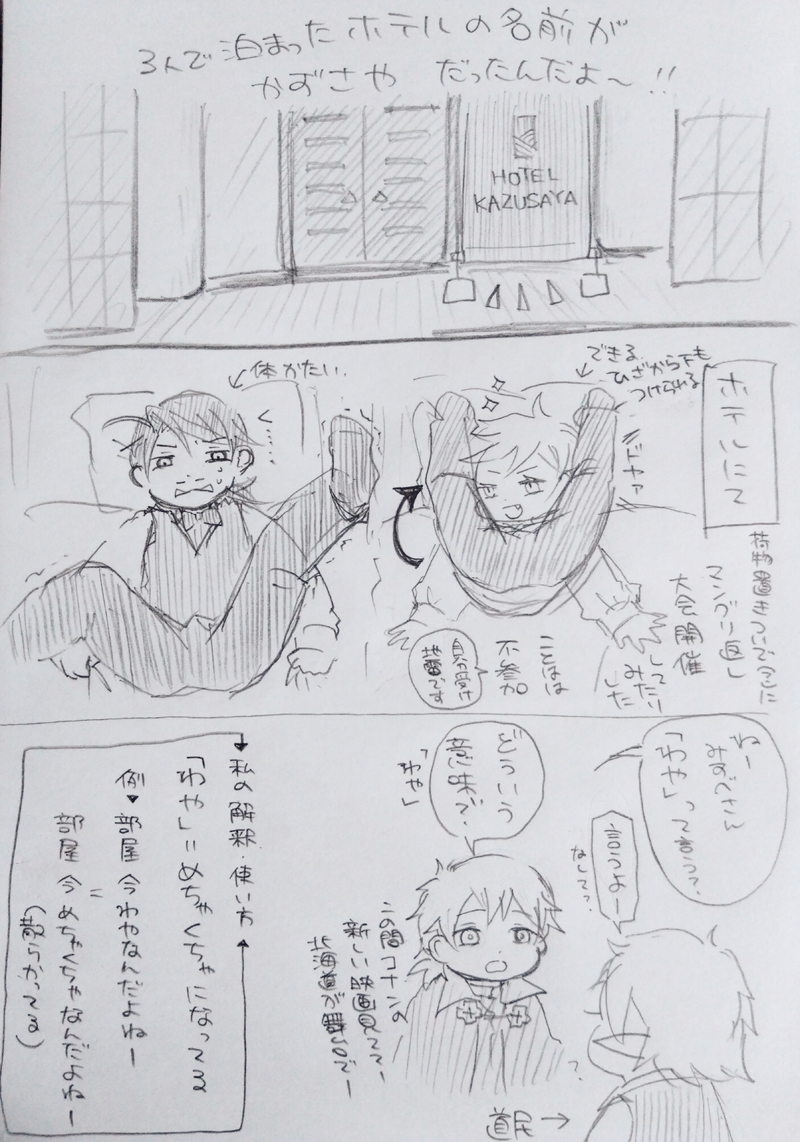 3人で泊まったホテルの名前が
かずさや だったんだよ〜!!
HOTEL
KAZUSAYA
ホテルにて
できる。
ひざから下も
つけられる
ドヤァ
体かたい。
荷物置きついでに
マングリ返し
大会開催
してみたり
した
ことはは
不参加
ねー
みずべさん
「わや」って言う?
言うよー
なしてー?
どういう
意味?
「わや」
この間コナンの
新しい映画見ててー
北海道が舞台でー
?
道民→
私の解釈・使い方
「わや」=めちゃくちゃになってる
例▼部屋今わやなんだよねー
=
部屋今めちゃくちゃなんだよねー
(散らかってる)